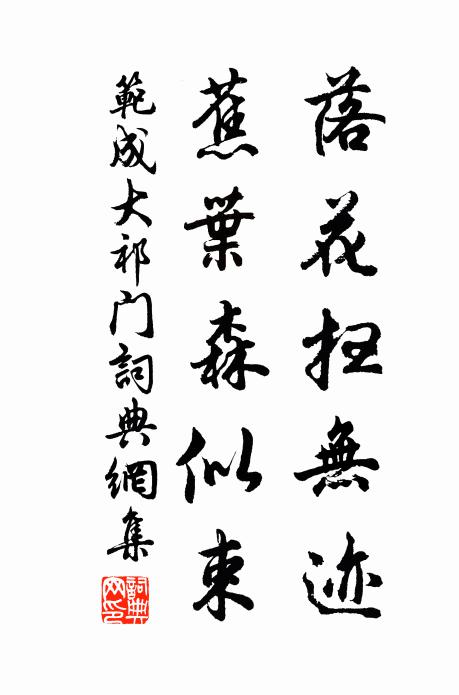 落花扫無迹
蕉葉森似束
範成大祁门詞典網集
詞典網印